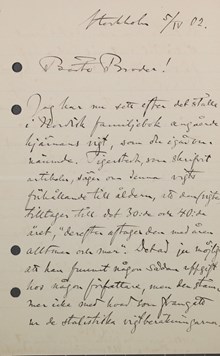 Stockholm 5/IV 02.
Bäste Broder!
Jag har nu sett efter det ställe
i Nordisk familjebok angående
hjärnans vigt, som du igår om-
nämnde. Tigerstedt, som skrifvit
artikeln, säger om denna vigts
förhållande till åldern, att den
tilltager till det 30:de och 40:de
året, "derefter aftager den med åren
alltmer och mer". Det är ju möjligt
att han funnit någon sådan uppgift
hos någon författare, men den stäm-
mer icke med hvad som framgått
ur de statistiska vigtberäkningarna